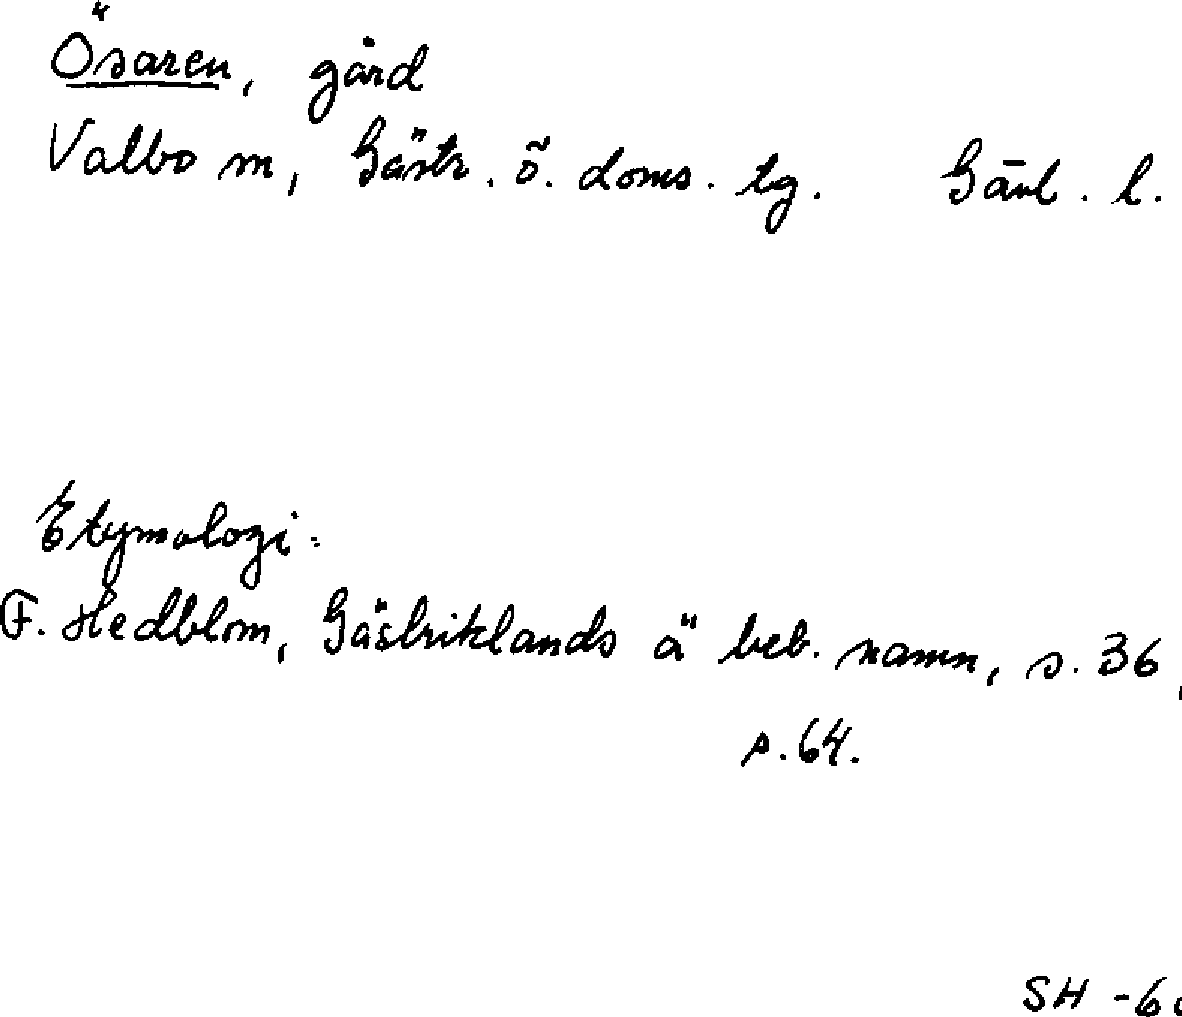 Ösaren, gård
Valbo sn, Gästr. ö. doms. tg. Gävl. l.
Etymologi:
F. Hedblom, Gästriklands ä beb. namn, s. 36,
s. 64.
SH -6